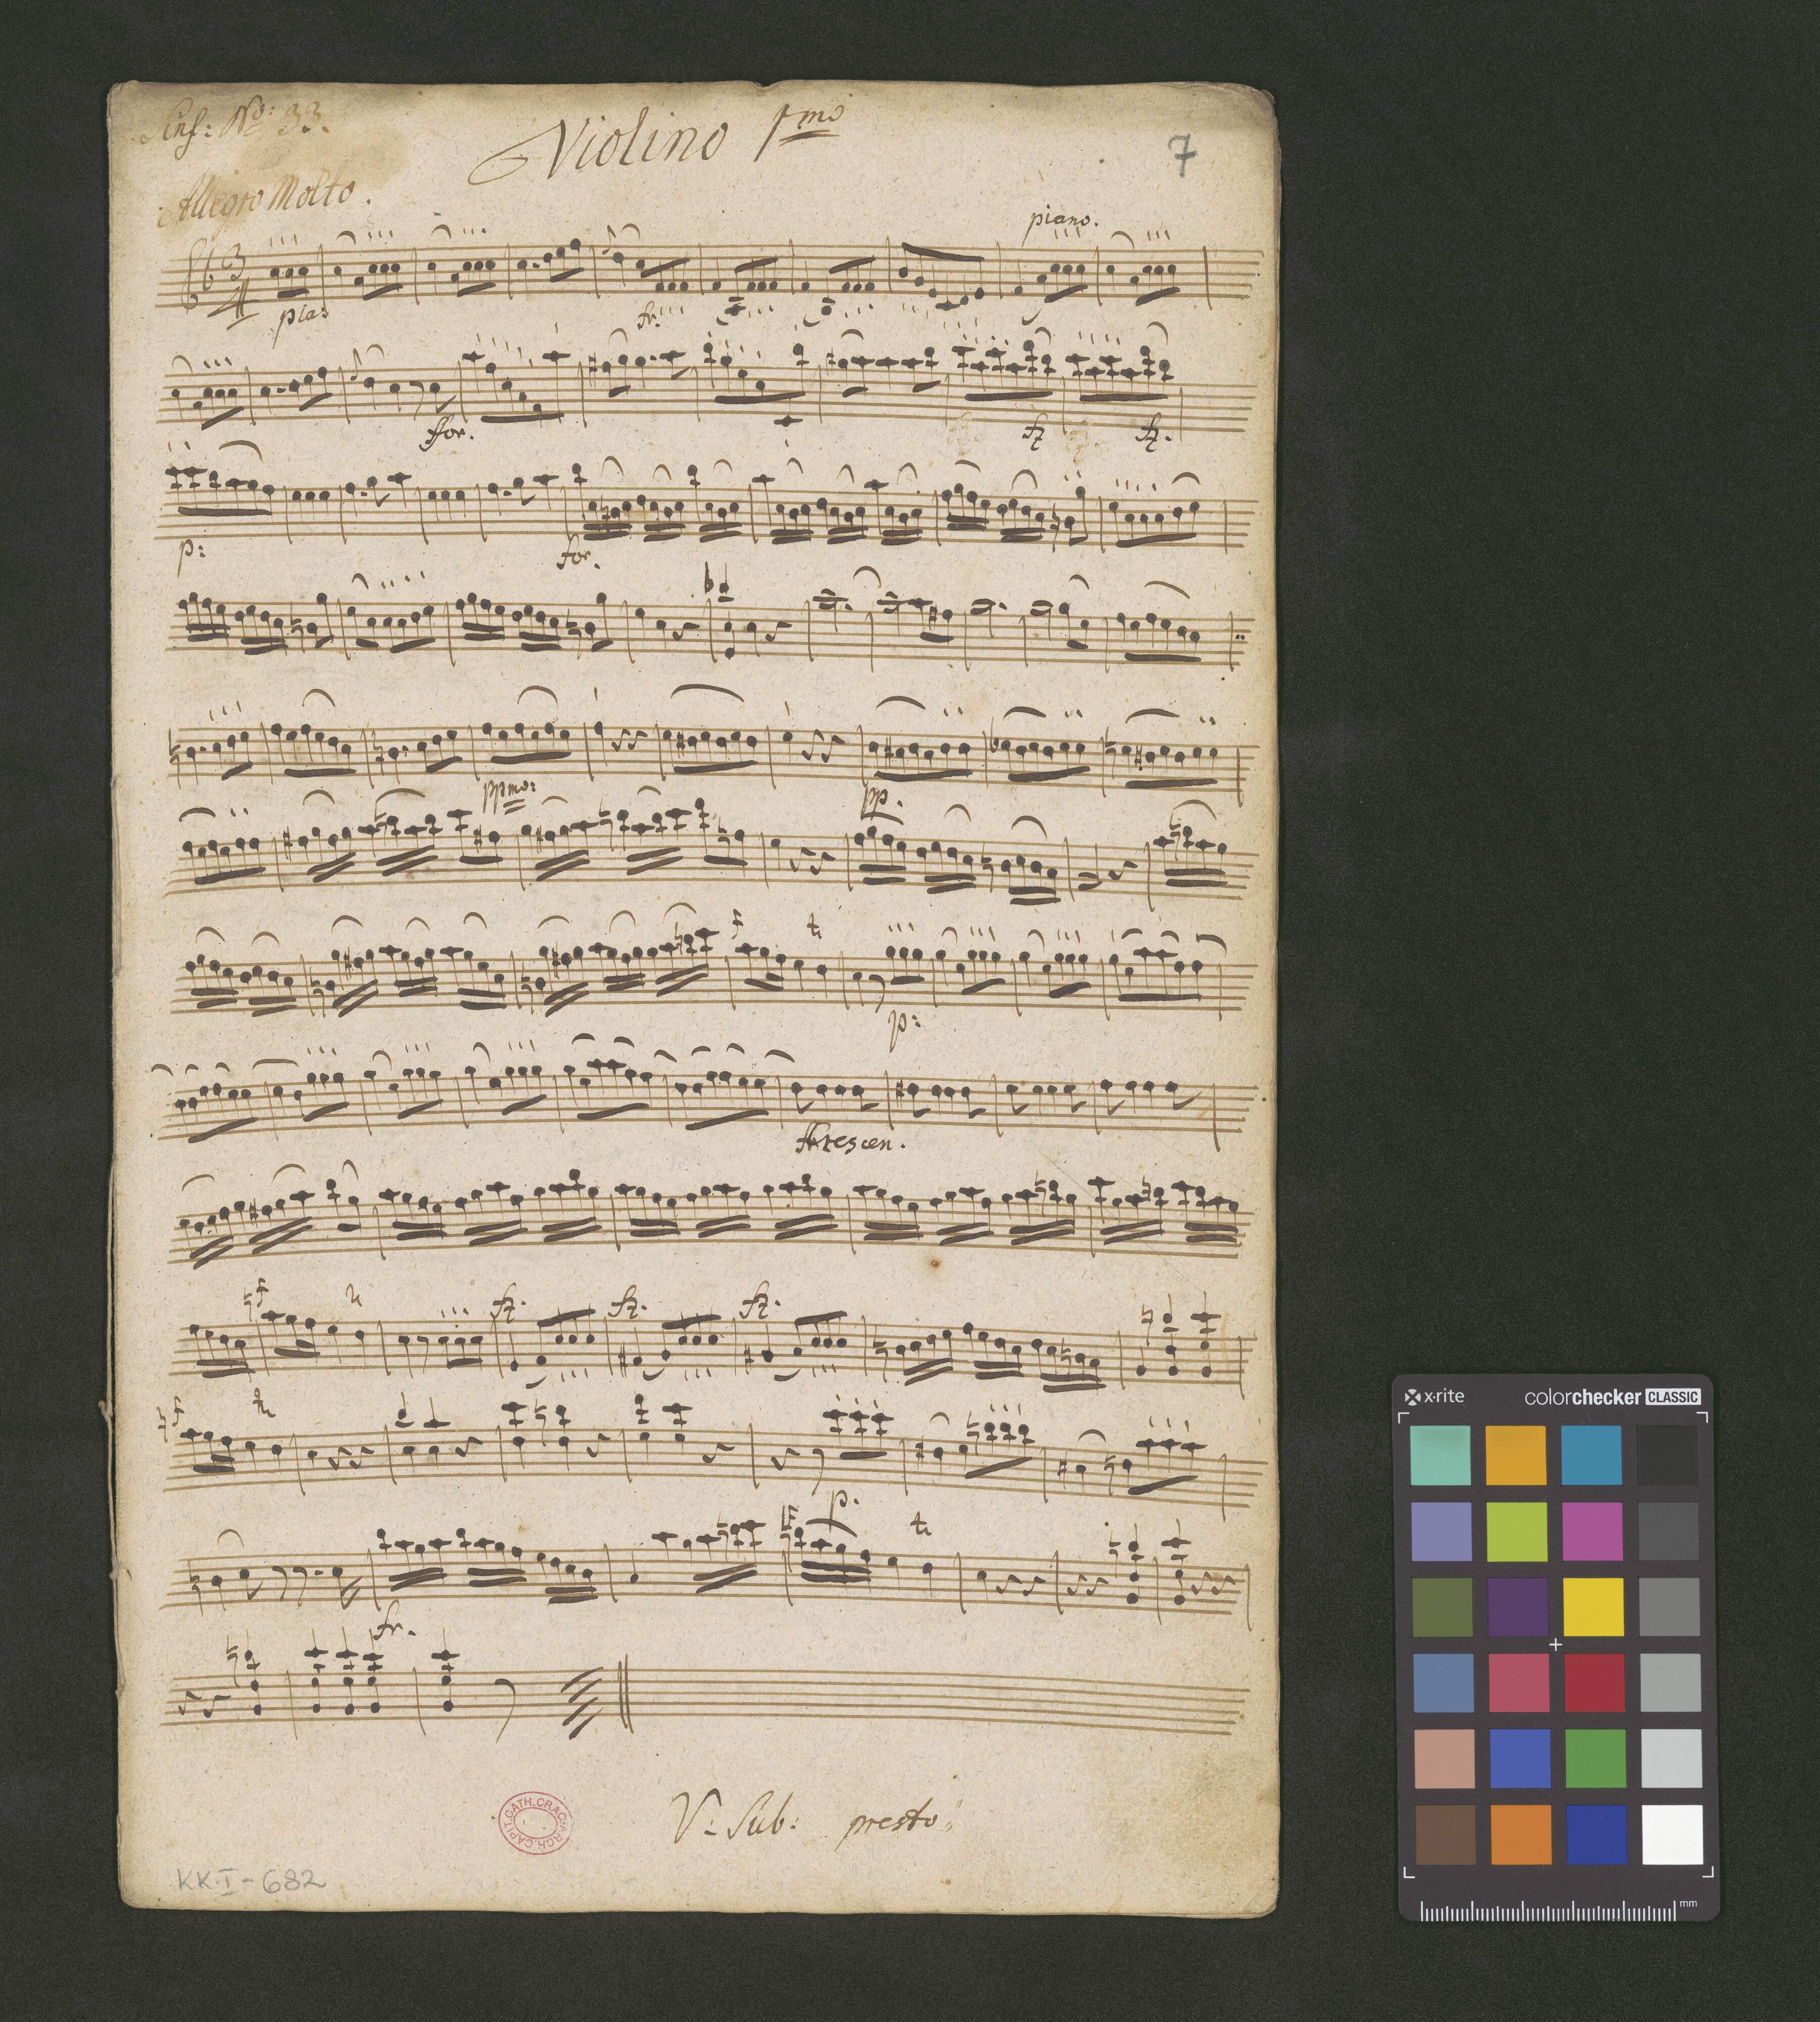 Sinf: No: 33.
Violino 1mo
7
Allegro Molto.
piano.
3
4
pia:
fr:
ffor.
fz
fz.
p:
for.
ppmo:
pp.
p:
Crescen.
fz.
fz.
fz.
p.
fr.
V: Sub: presto
CATH. CRAC. ARCH. CAPIT.
KK.I-682
x-rite
colorchecker CLASSIC
mm